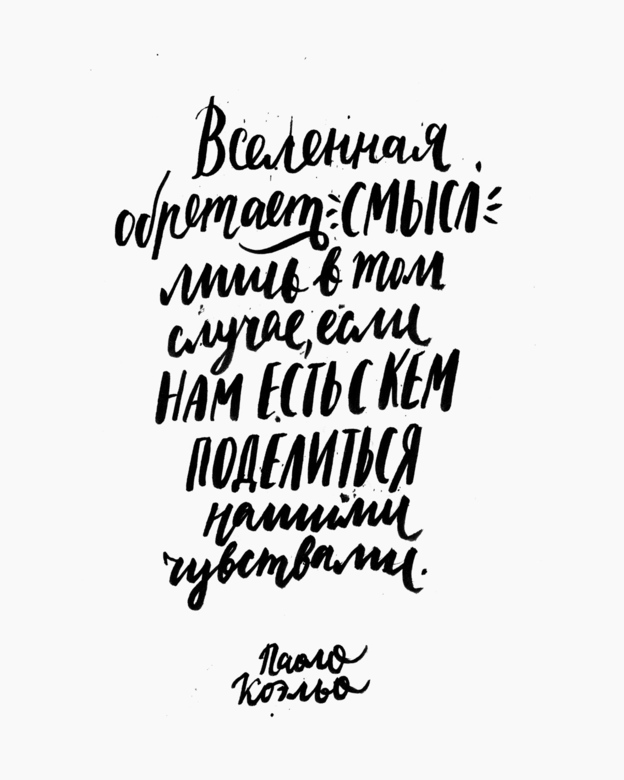 Вселенная
обретает СМЫСЛ
лишь в том
случае, если
НАМ ЕСТЬ С КЕМ
ПОДЕЛИТЬСЯ
нашими
чувствами.
Паоло
Коэльо